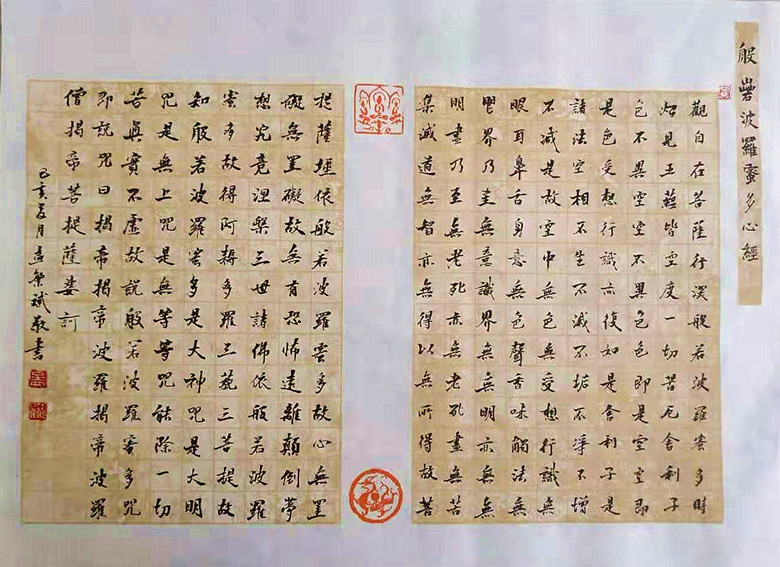 般若波羅蜜多心經
觀自在菩薩行深般若波羅蜜多時
照見五蘊皆空度一切苦厄舍利子
色不異空空不異色色即是空空即
是色受想行識亦復如是舍利子是
諸法空相不生不滅不垢不淨不增
不減是故空中無色無受想行識無
眼耳鼻舌身意無色聲香味觸法無
眼界乃至無意識界無無明亦無無
明盡乃至無老死亦無老死盡無苦
集滅道無智亦無得以無所得故菩
提薩埵依般若波羅蜜多故心無罣
礙無罣礙故無有恐怖遠離顛倒夢
想究竟涅槃三世諸佛依般若波羅
蜜多故得阿耨多羅三藐三菩提故
知般若波羅蜜多是大神咒是大明
咒是無上咒是無等等咒能除一切
苦真實不虛故說般若波羅蜜多咒
即說咒曰揭帝揭帝波羅揭帝波羅
僧揭帝菩提薩婆訶
己亥夏月孟繁斌敬書